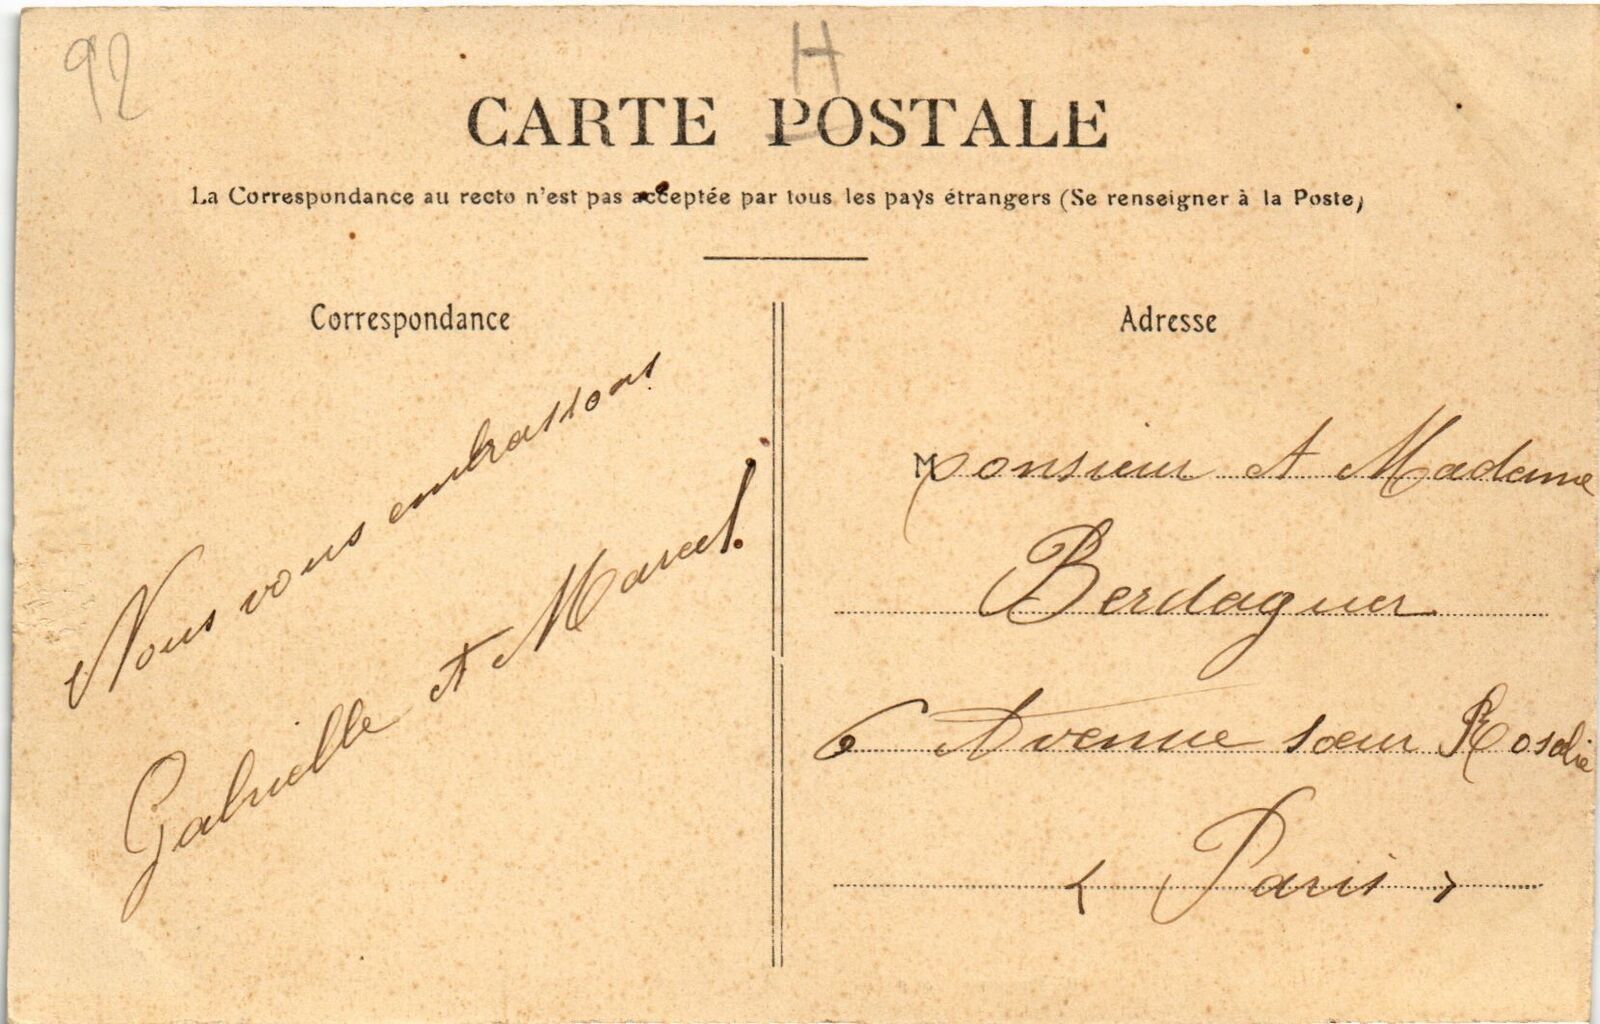 92
H
CARTE POSTALE
La Correspondance au recto n'est pas acceptée par tous les pays étrangers (Se renseigner à la Poste)
Correspondance
Nous vous embrassons
Gabrielle et Marcel.
Adresse
Monsieur et Madame
Berdaguer
6 Avenue sœur Rosalie
( Paris )